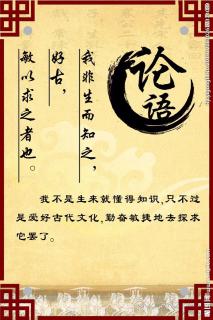 论语
我非生而知之，
好古，
敏以求之者也。
我不是生来就懂得知识，只不过
是爱好古代文化，勤奋敏捷地去探求
它罢了。